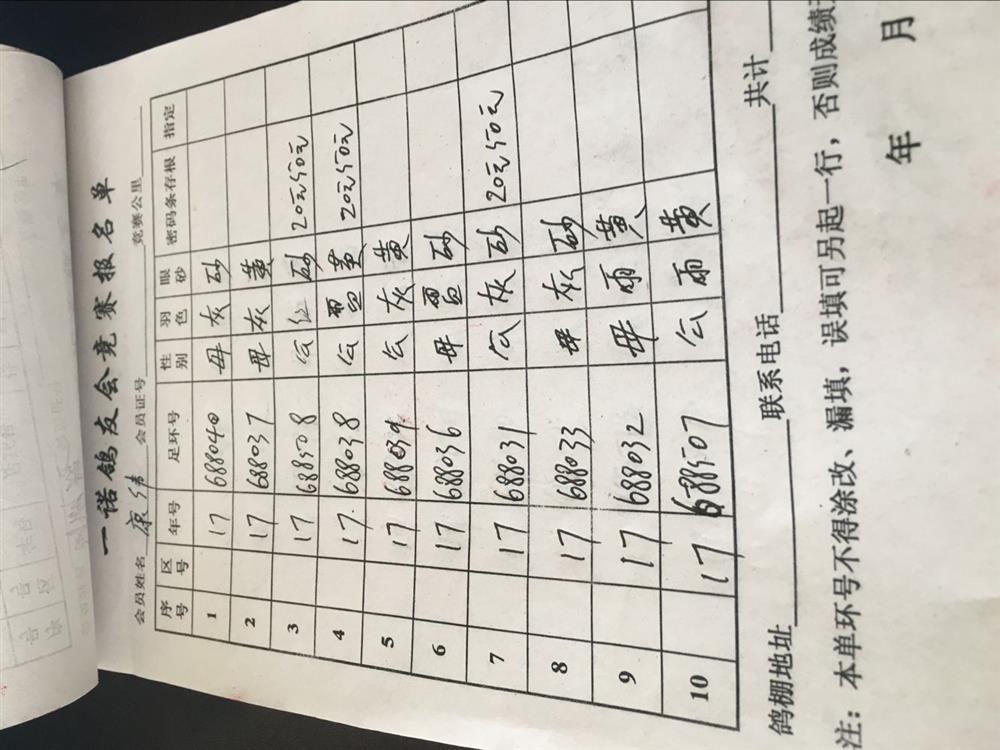 一诺鸽友会竞赛报名单
会员姓名 康纬 会员证号 竞赛公里
序号 区号 年号 足环号 性别 羽色 眼砂 密码条存根 指定
1 17 688040 母 灰 砂
2 17 688037 母 灰 黄
3 17 688508 公 红 砂 20元50元
4 17 688038 公 雨 黄 20元50元
5 17 688039 公 灰 黄
6 17 688036 母 雨 砂
7 17 688031 公 灰 砂 20元50元
8 17 688033 母 灰 砂
9 17 688032 母 雨 黄
10 17 688507 公 雨 黄
鸽棚地址 联系电话 共计
注：本单环号不得涂改、漏填，误填可另起一行，否则成绩
年 月